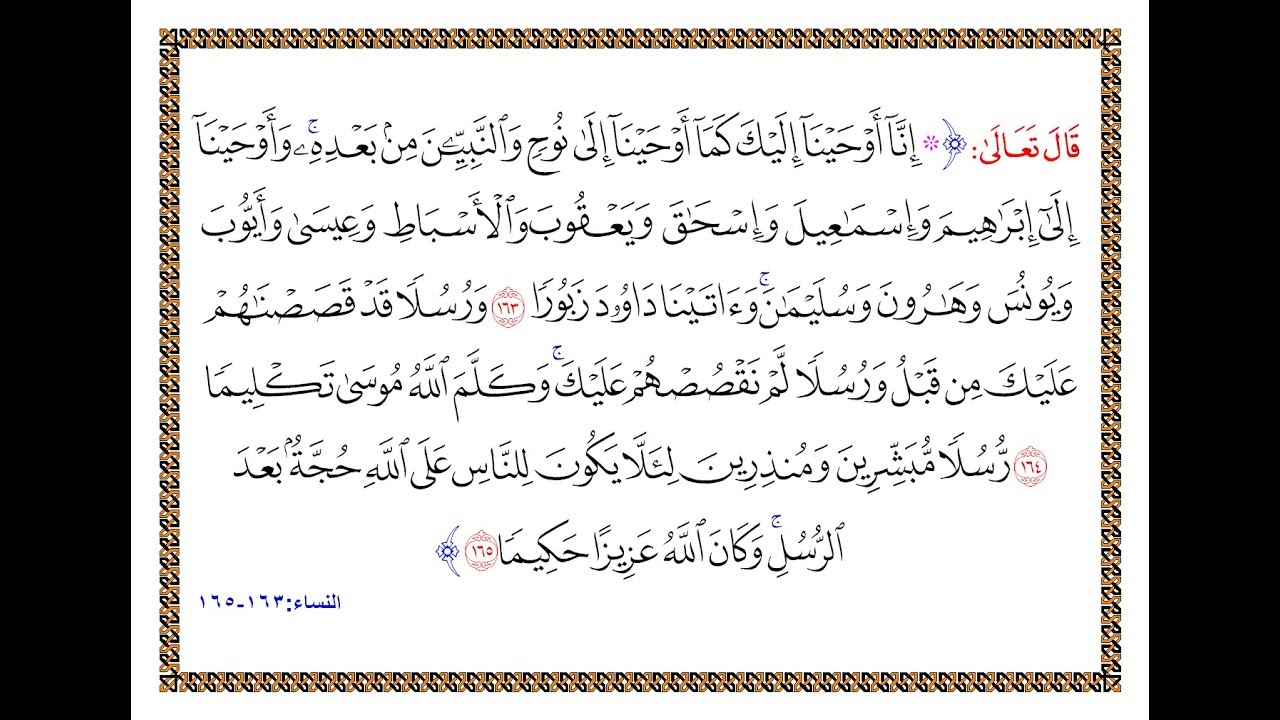 قَالَ تَعَالَىٰ: ﴿ ۞ إِنَّآ أَوْحَيْنَآ إِلَيْكَ كَمَآ أَوْحَيْنَآ إِلَىٰ نُوحٍ وَٱلنَّبِيِّـۧنَ مِنۢ بَعْدِهِۦۚ وَأَوْحَيْنَآ
إِلَىٰٓ إِبْرَٰهِيمَ وَإِسْمَٰعِيلَ وَإِسْحَٰقَ وَيَعْقُوبَ وَٱلْأَسْبَاطِ وَعِيسَىٰ وَأَيُّوبَ
وَيُونُسَ وَهَٰرُونَ وَسُلَيْمَٰنَۚ وَءَاتَيْنَا دَاوُۥدَ زَبُورًا ١٦٣ وَرُسُلًا قَدْ قَصَصْنَٰهُمْ
عَلَيْكَ مِن قَبْلُ وَرُسُلًا لَّمْ نَقْصُصْهُمْ عَلَيْكَۚ وَكَلَّمَ ٱللَّهُ مُوسَىٰ تَكْلِيمًا
١٦٤ رُّسُلًا مُّبَشِّرِينَ وَمُنذِرِينَ لِئَلَّا يَكُونَ لِلنَّاسِ عَلَى ٱللَّهِ حُجَّةٌۢ بَعْدَ
ٱلرُّسُلِۚ وَكَانَ ٱللَّهُ عَزِيزًا حَكِيمًا ١٦٥ ﴾
النساء:١٦٣-١٦٥